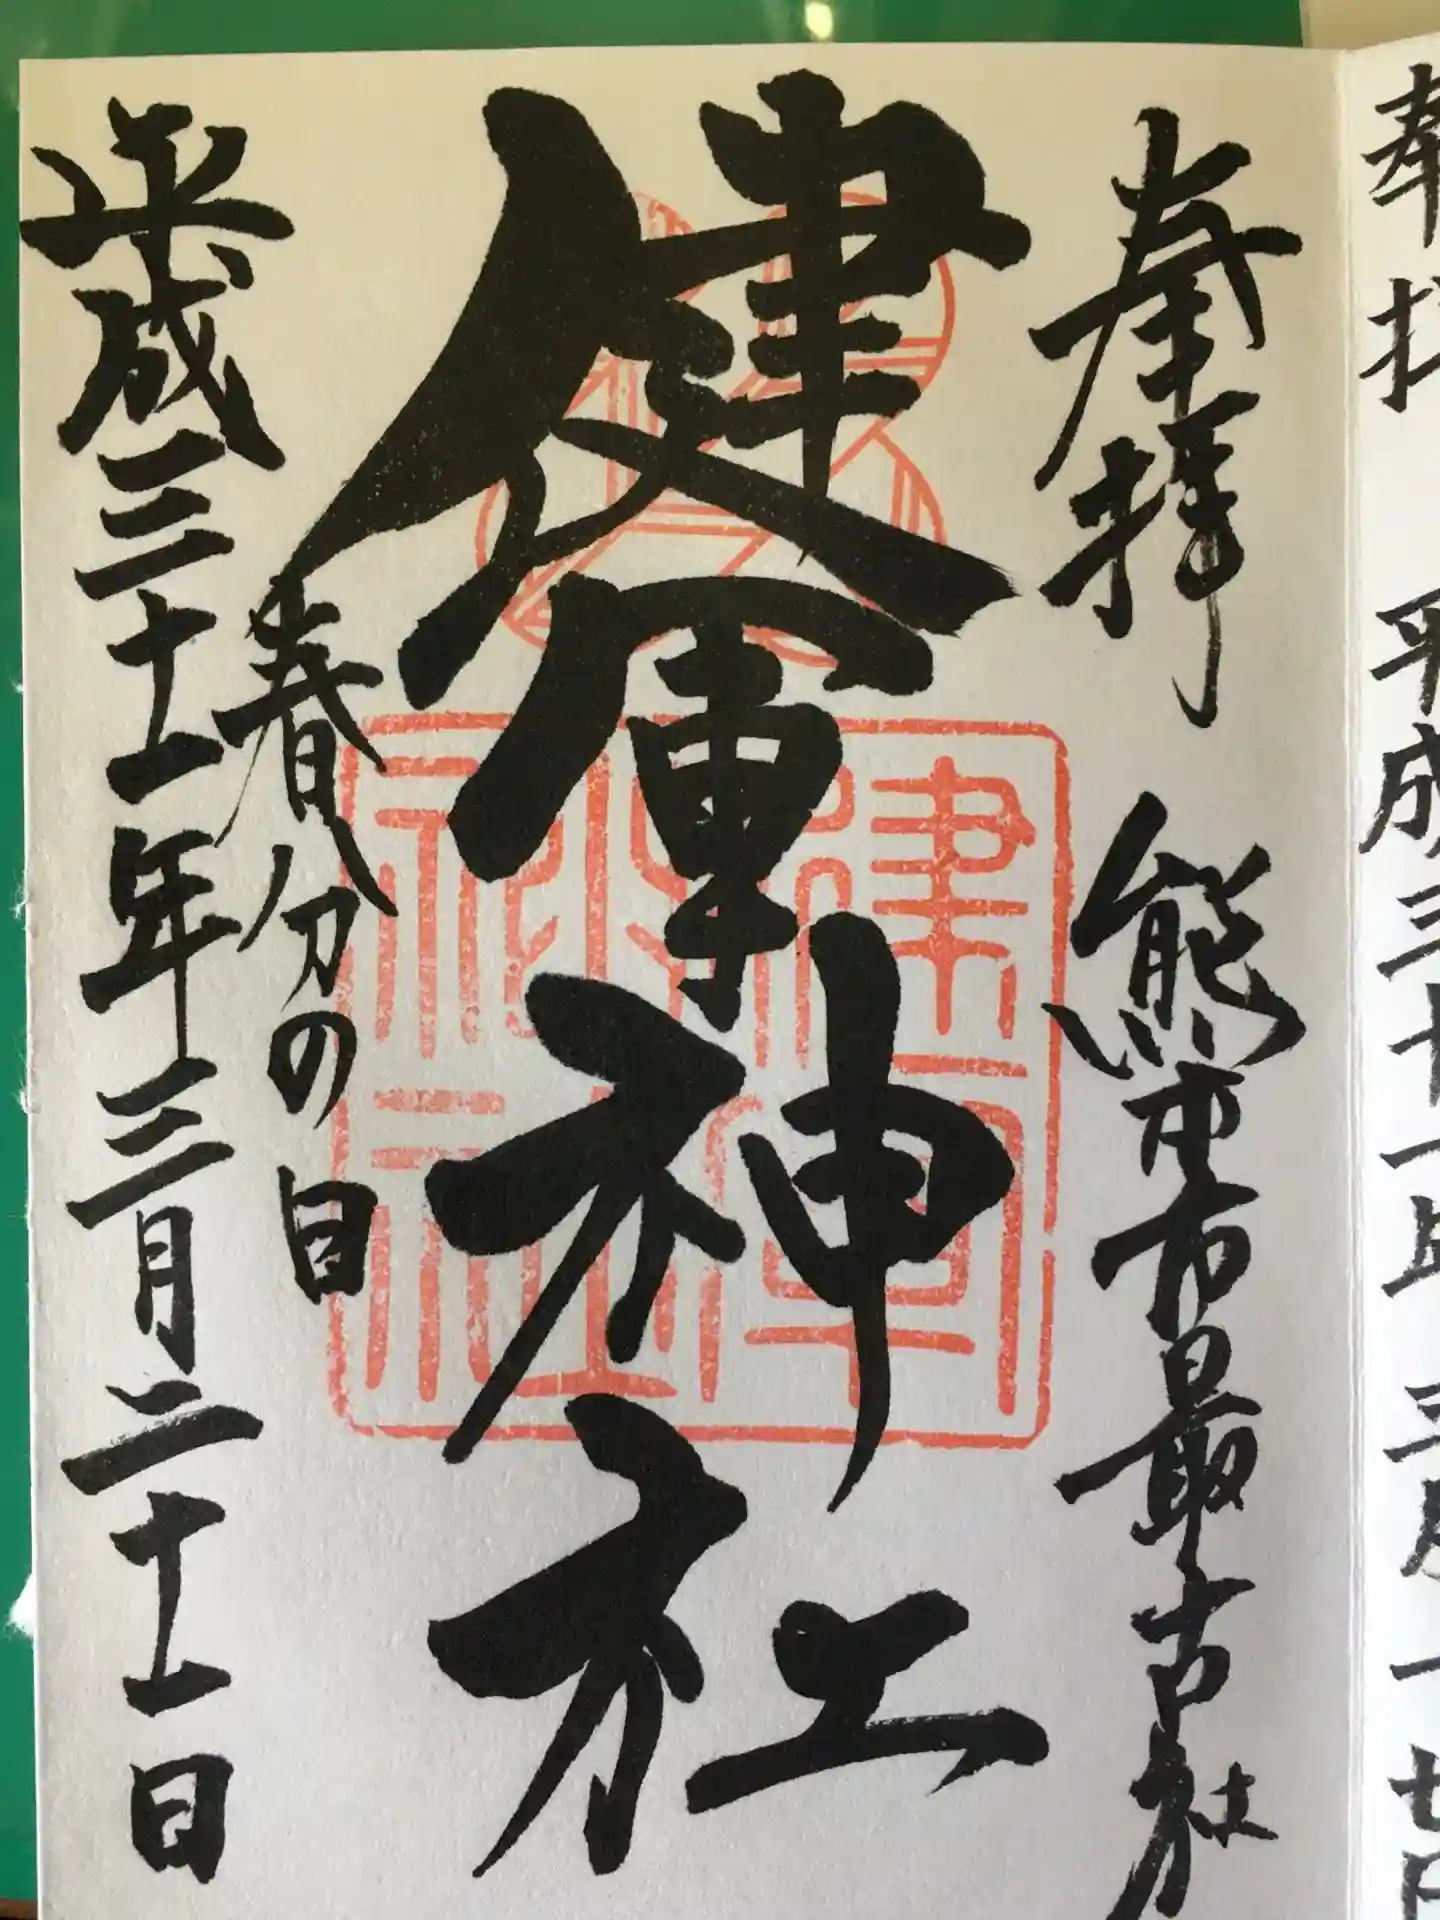 奉拝
平成三十一年三月
奉拝 熊本市最古社
健軍神社
春分の日
平成三十一年三月二十一日
健軍神社